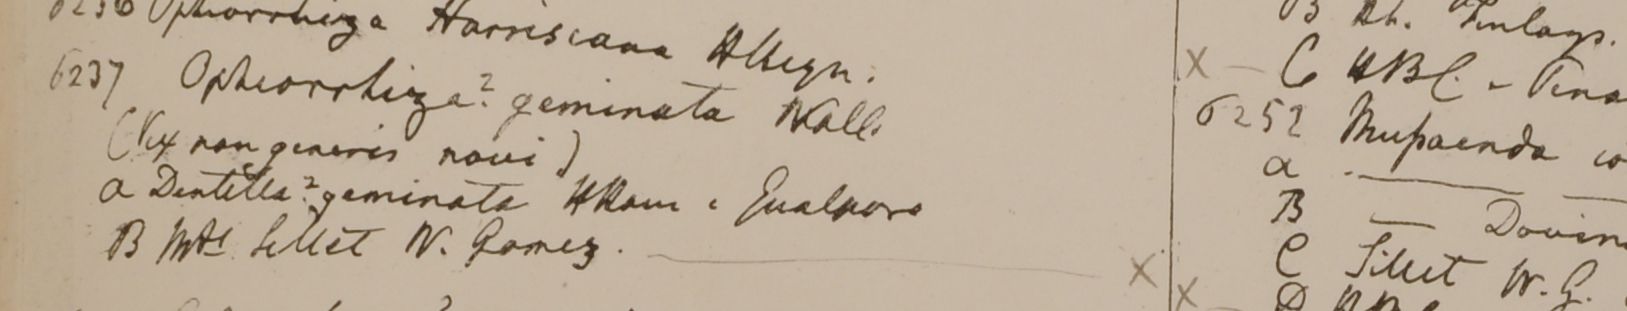 6236 Ophiorrhiza Harrisiana HHeyn.
6237 Opheorrhiza? geminata Wall.
(Vix non generis novi)
a Dentella? geminata HHam. Gualpara
B Mts Sillet W. Gomez.
B Rh. Finlays.
X C HBC.
6252 Mussaenda
a
B
C Sillet W.G.
X X D